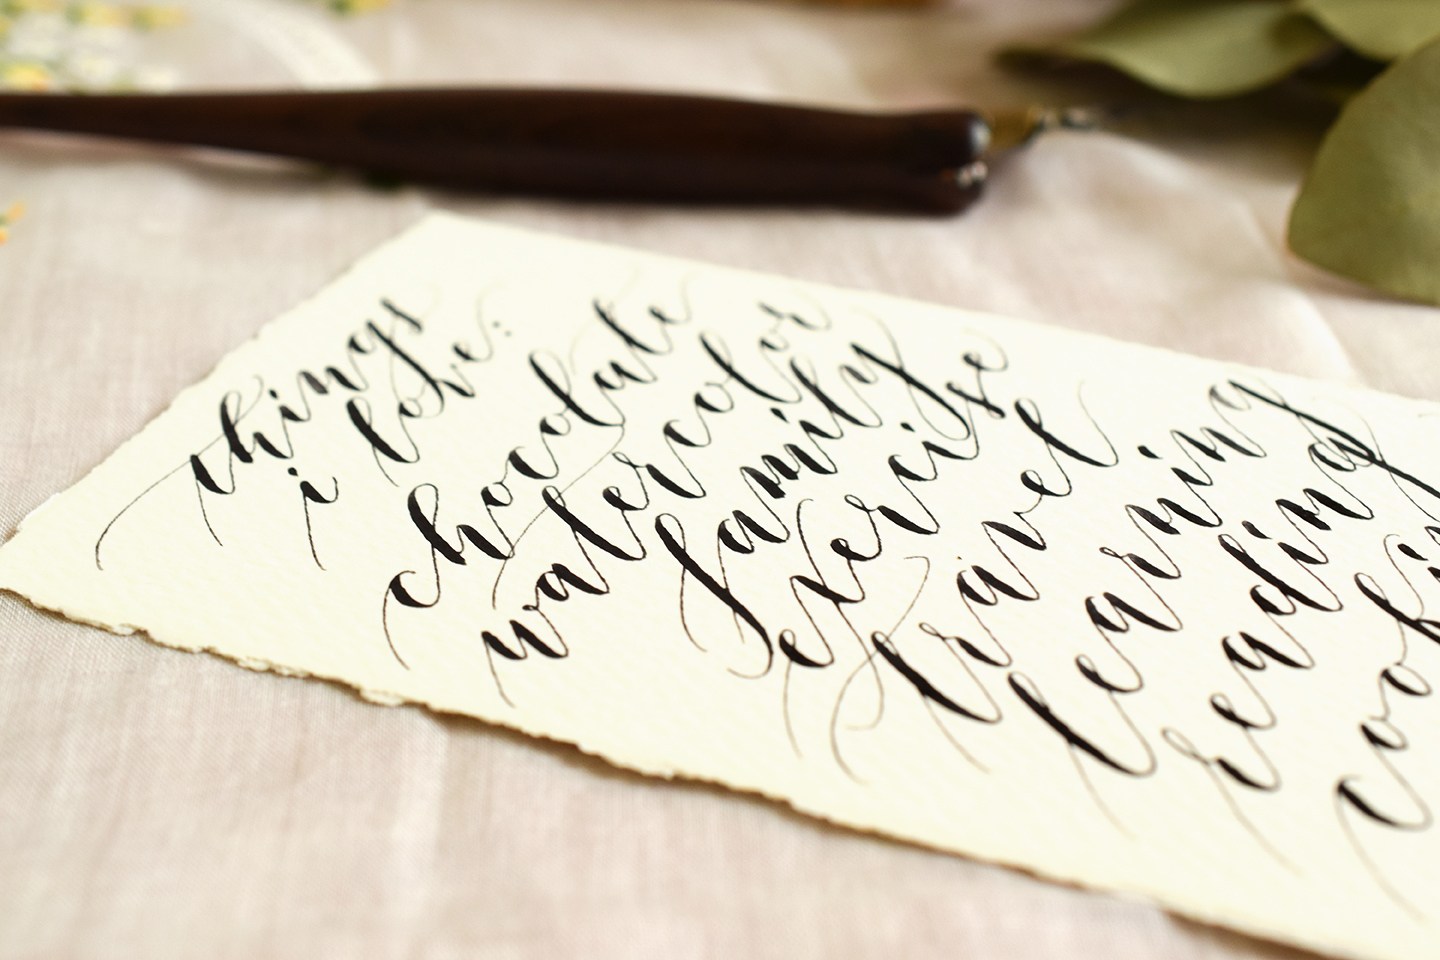 things
i love:
chocolate
watercolor
family
exercise
travel
learning
reading